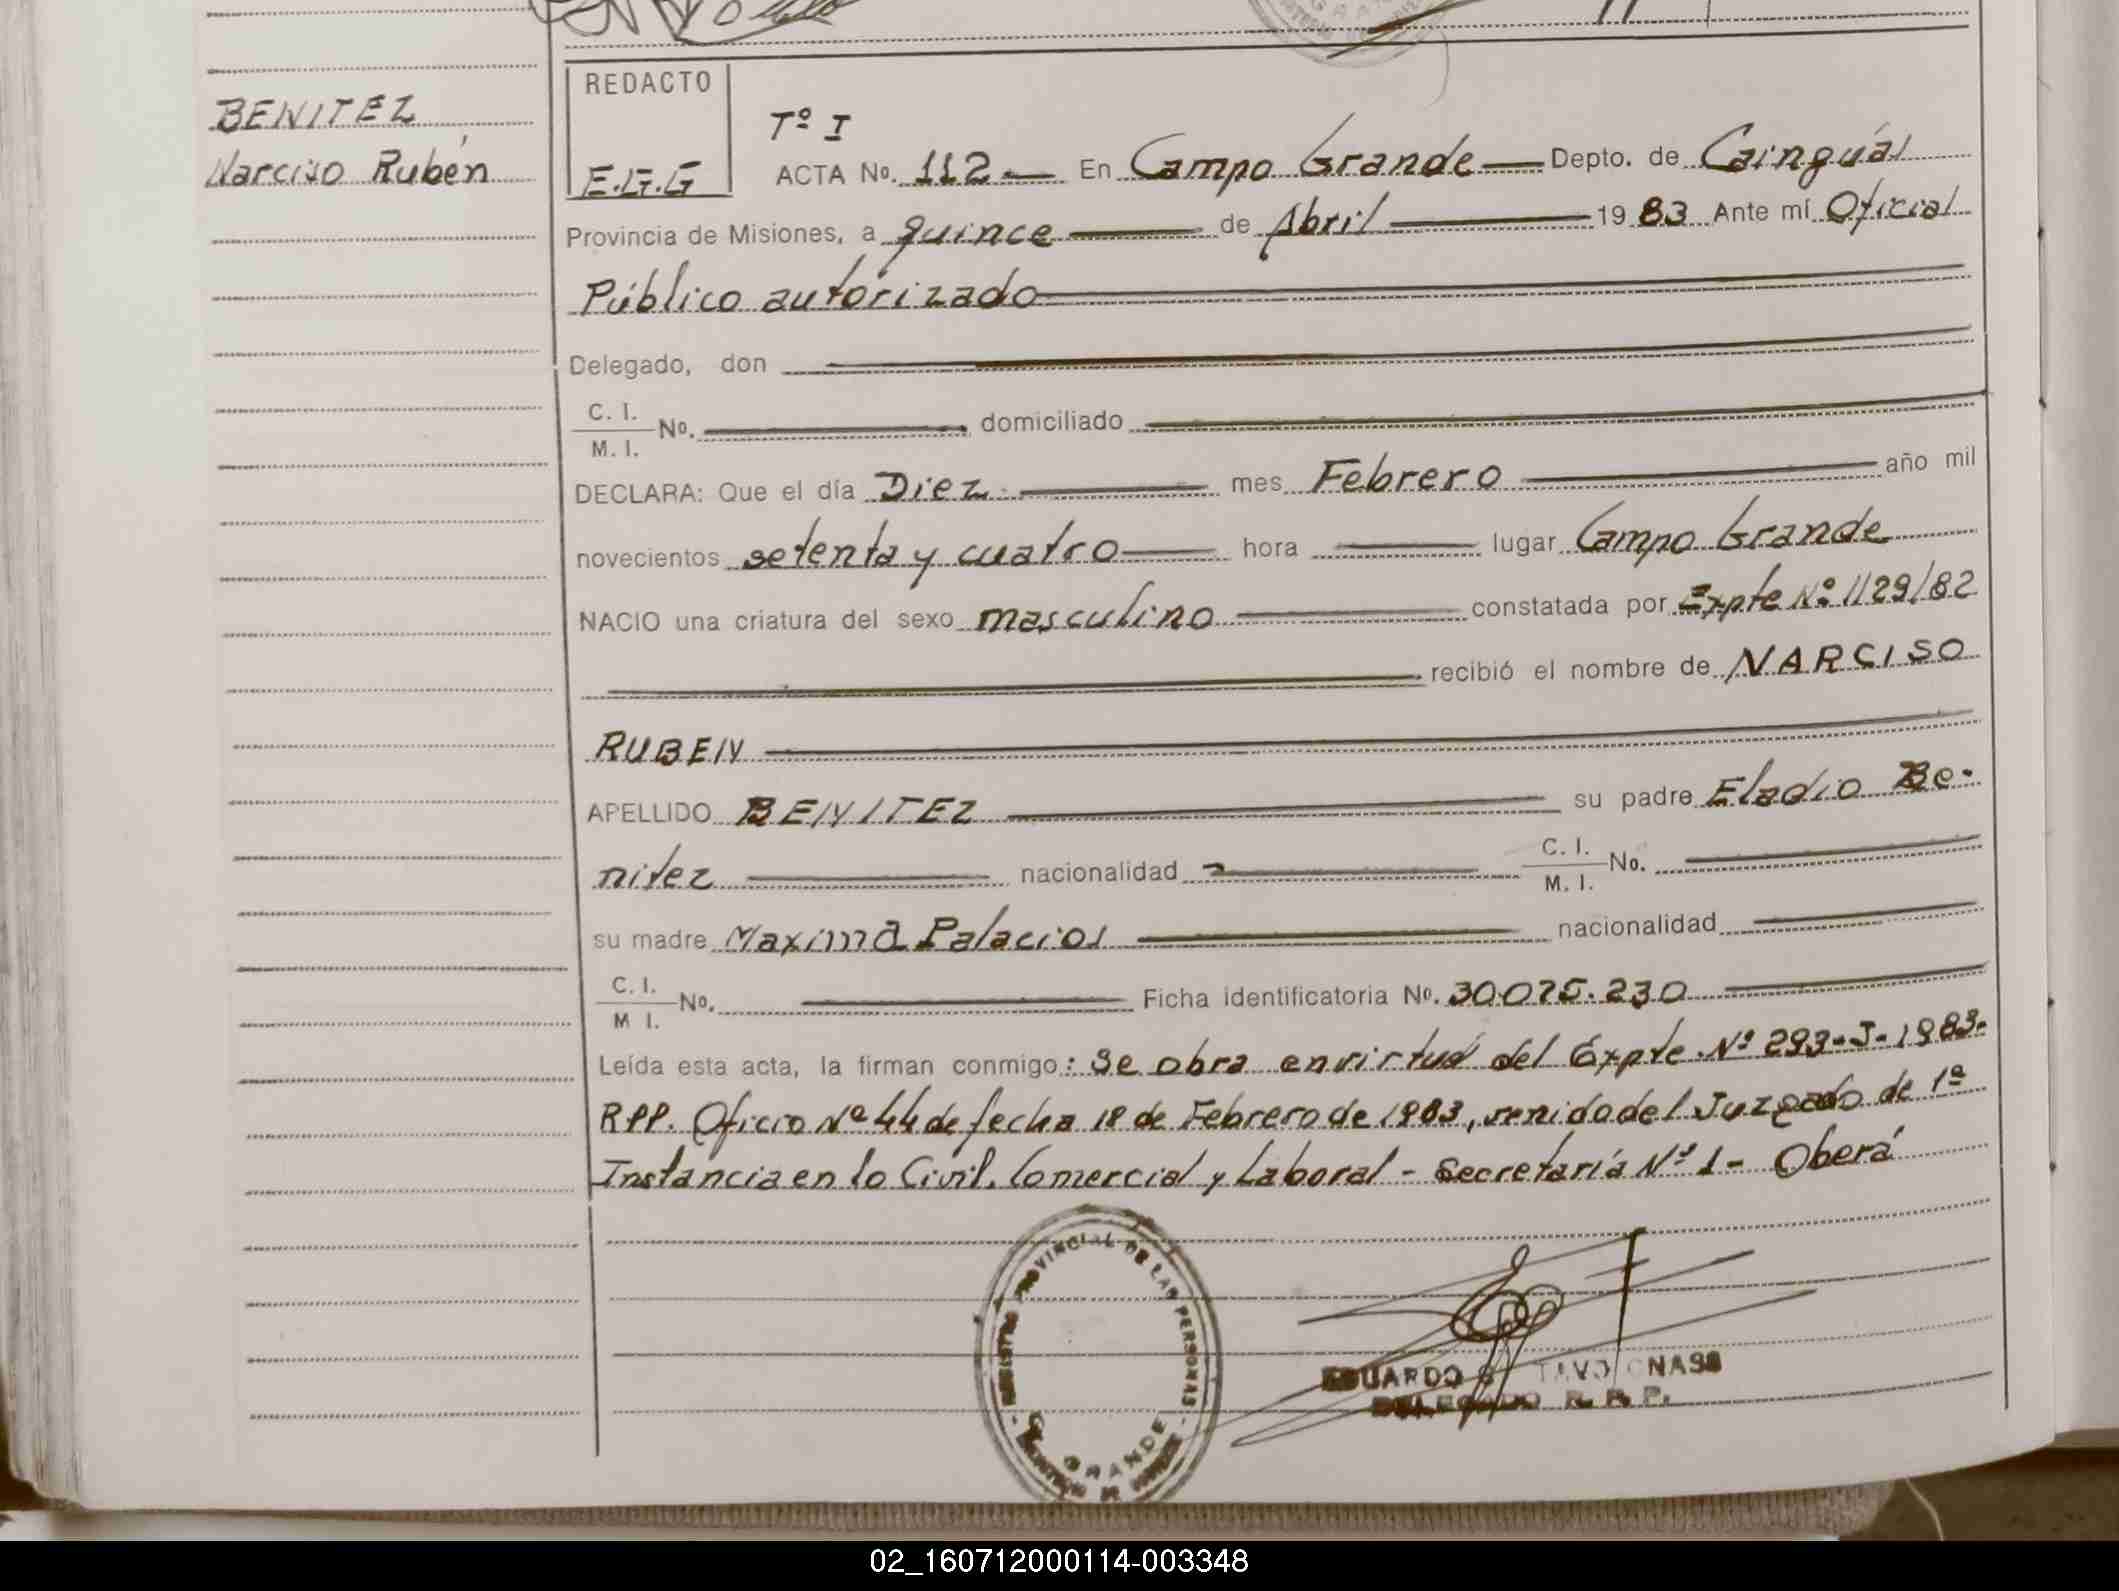 BENITEZ
Narciso Rubén
REDACTO
E.G.G
Tº I
ACTA No. 112 En Campo Grande Depto. de Cainguás
Provincia de Misiones, a quince de Abril 1983 Ante mí Oficial
Público autorizado
Delegado, don
C. I.
M. I. No. domiciliado
DECLARA: Que el día Diez mes Febrero año mil
novecientos setenta y cuatro hora lugar Campo Grande
NACIO una criatura del sexo masculino constatada por Expte Nº 1129/82
recibió el nombre de NARCISO
RUBEN
APELLIDO BENITEZ su padre Eladio Be-
nitez nacionalidad C. I.
M. I. No.
su madre Maxima Palacios nacionalidad
C. I.
M I. No. Ficha identificatoria No. 30.075.230
Leída esta acta, la firman conmigo: Se obra en virtud del Expte. Nº 293-J-1983-
RPP. Oficio Nº 44 de fecha 18 de Febrero de 1983, venido del Juzgado de 1ª
Instancia en lo Civil, Comercial y Laboral - Secretaría Nº 1 - Oberá
REGISTRO PROVINCIAL DE LAS PERSONAS
GRANDE
EDUARDO
DELEGADO R. P. P.
02_160712000114-003348